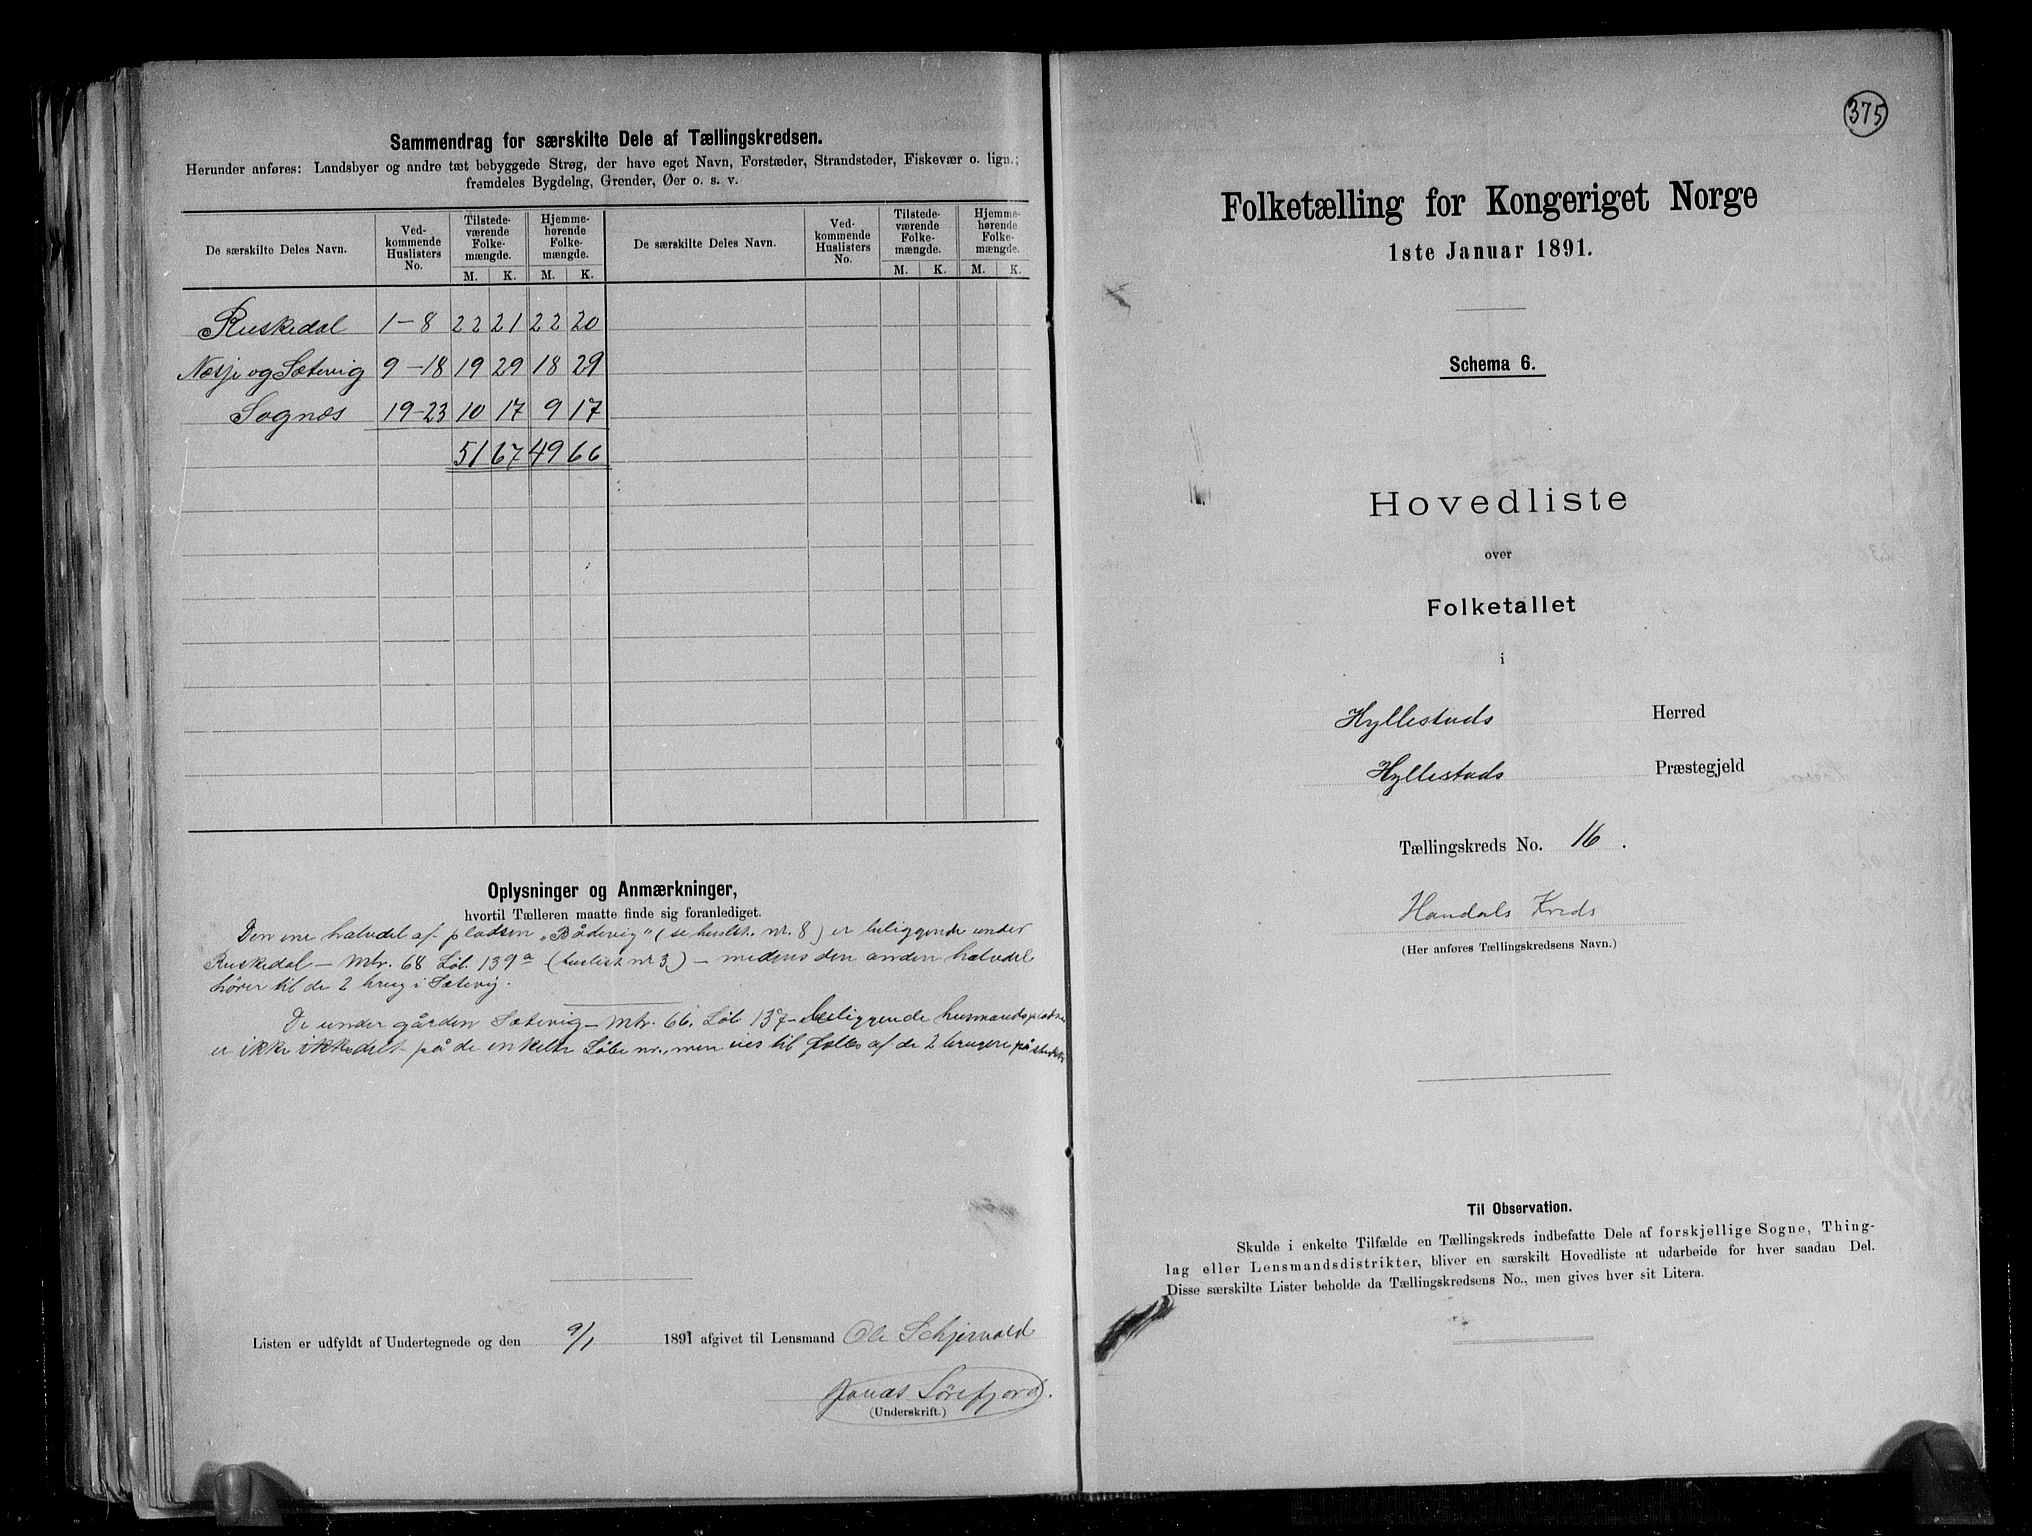 Sammendrag for særskilte Dele af Tællingskredsen.
Herunder anføres: Landsbyer og andre tæt bebyggede Strøg, der have eget Navn, Forstæder, Strandsteder, Fiskevær o. lign.;
fremdeles Bygdelag, Grender, Øer o. s. v.
De særskilte Deles Navn. Ved-kommende Huslisters No. Tilstede-værende Folke-mængde. Hjemme-hørende Folke-mængde. De særskilte Deles Navn. Ved-kommende Huslisters No. Tilstede-værende Folke-mængde. Hjemme-hørende Folke-mængde.
M. K. M. K. M. K. M. K.
Ruskedal 1-8 22 21 22 20
Næsje og Sætevig 9-18 19 29 18 29
Sognæs 19-23 10 17 9 17
51 67 49 66
Oplysninger og Anmærkninger,
hvortil Tælleren maatte finde sig foranlediget.
Den ene halvdel af pladsen "Bådevig" (se huslst. nr. 8) er beliggende under
Ruskedal - Mtr. 68 Löb. 139a (huslist nr 3) - medens den anden halvdel
hører til de 2 brug i Sætevig.
De under gården Sætevig - Mtr. 66, Löb 137 - beliggende
er ikke på de enkelte Löbe nr., men til fælles af de 2 brugere på
Listen er udfyldt af Undertegnede og den 9/1 1891 afgivet til Lensmand Ole Schjervold
Jonas Sörefjord.
(Underskrift.)
375
Folketælling for Kongeriget Norge
1ste Januar 1891.
Schema 6.
Hovedliste
over
Folketallet
i
Hyllestads Herred
Hyllestads Præstegjeld
Tællingskreds No. 16.
Handals Kreds
(Her anføres Tællingskredsens Navn.)
Til Observation.
Skulde i enkelte Tilfælde en Tællingskreds indbefatte Dele af forskjellige Sogne, Thing-
lag eller Lensmandsdistrikter, bliver en særskilt Hovedliste at udarbeide for hver saadan Del.
Disse særskilte Lister beholde da Tællingskredsens No., men gives hver sit Litera.